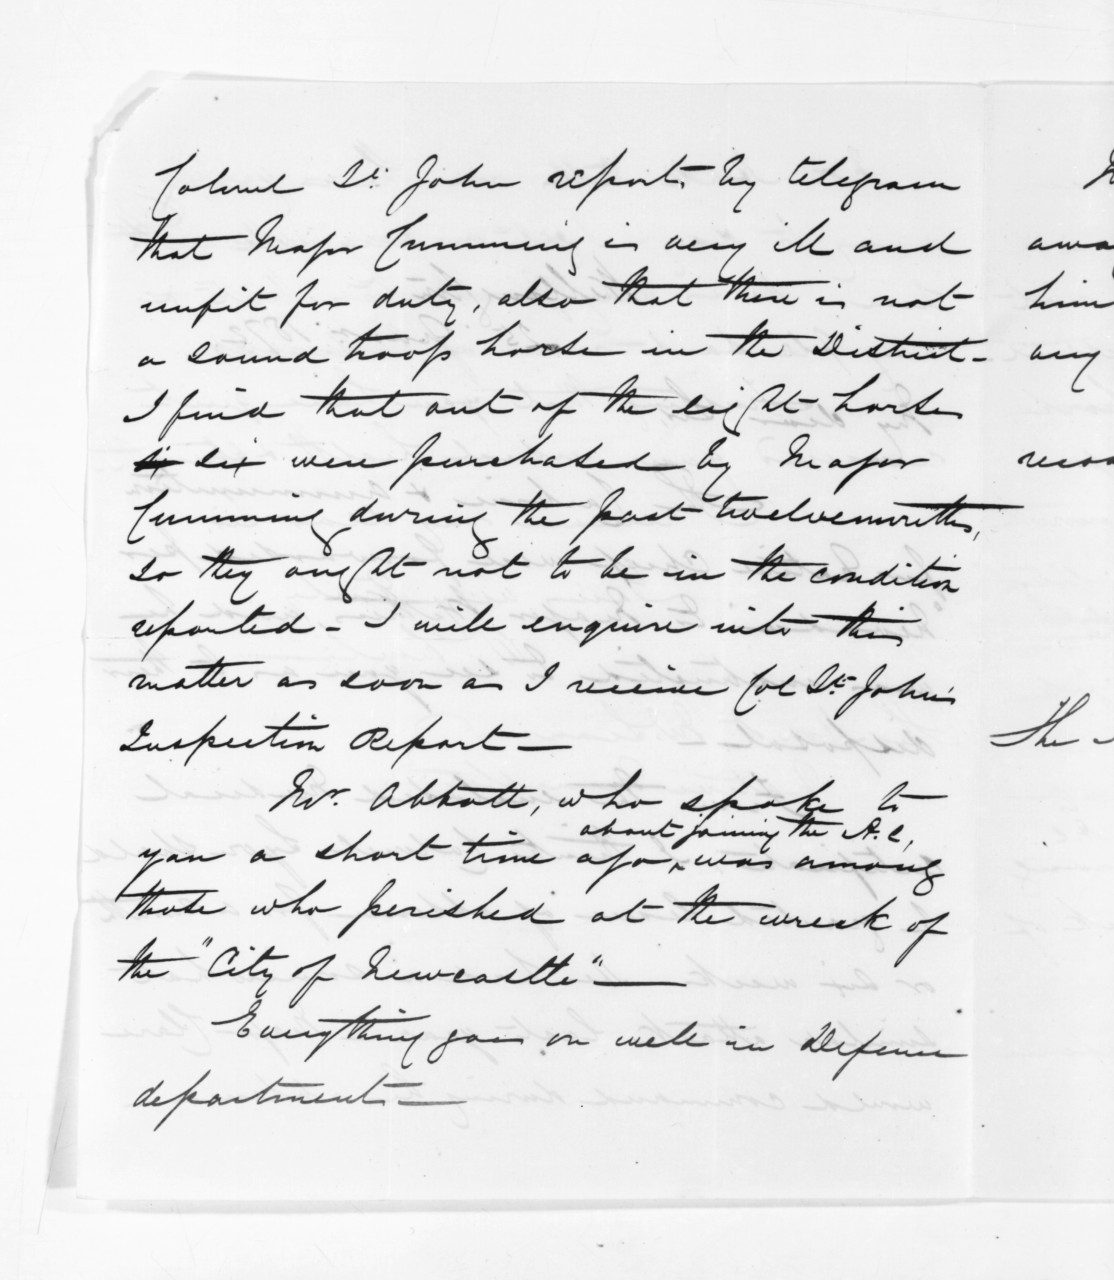 Colonel St. John reports by telegram
that Major Cumming is very ill and
unfit for duty, also that there is not
a sound troop horse in the District -
I find that out of the eight horses
six six were purchased by Major
Cumming during the past twelvemonths,
so they ought not to be in the condition
reported - I will enquire into this
matter as soon as I receive Col St. John's
Inspection Report -
Mr. Abbott, who spoke to
about joining the A.C,
you a short time ago, was among
those who perished at the wreck of
the "City of Newcastle" -
Everything goes on well in Defence
department -
him
any
The